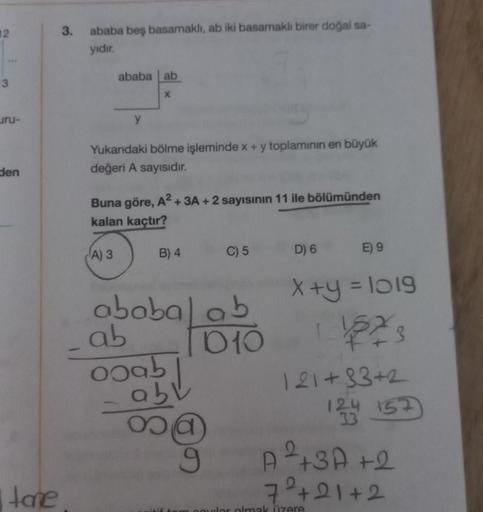 12
...
3
uru-
den
3. ababa beş basamaklı, ab iki basamaklı birer doğal sa-
yıdır.
ababa ab
x
y
Yukarıdaki bölme işleminde x + y toplamının en büyük
değeri A sayısıdır.
Buna göre, A² + 3A + 2 sayısının 11 ile bölümünden
kalan kaçtır?
A) 3 B) 4 C) 5 D) 6 E) 9
x+y = 1019
ababa ab
- ab 1010
00ab
- ab
00a
9
121+33+2
124 157
33
A²+3A+2
7²+21+2
tane
olmak üzere